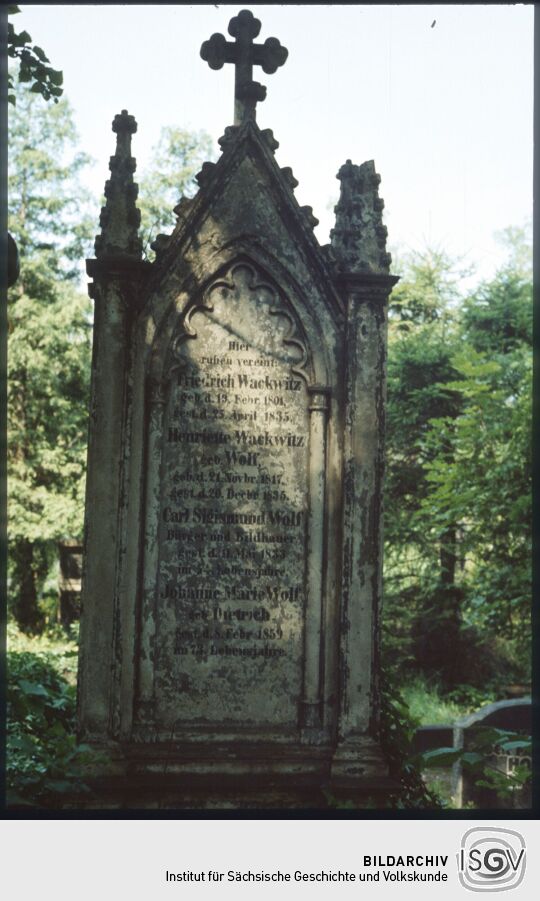 Hier
ruhen vereint:
Friedrich Wackwitz
geb. d. 19. Febr. 1801,
gest. d. 25. April 1835.
Henriette Wackwitz
geb. Wolf,
geb. d. 21. Novbr.
gest. d. 20. Decbr.
Carl Sigismund Wolf
Bürger und Bildhauer,
gest. d. 11. Mai
im Lebensjahre.
Johanne Marie Wolf
geb. Dietrich,
gest. d. 8. Febr. 1859
im 73. Lebensjahre.
HO
BILDARCHIV
Institut für Sächsische Geschichte und Volkskunde
ISGV